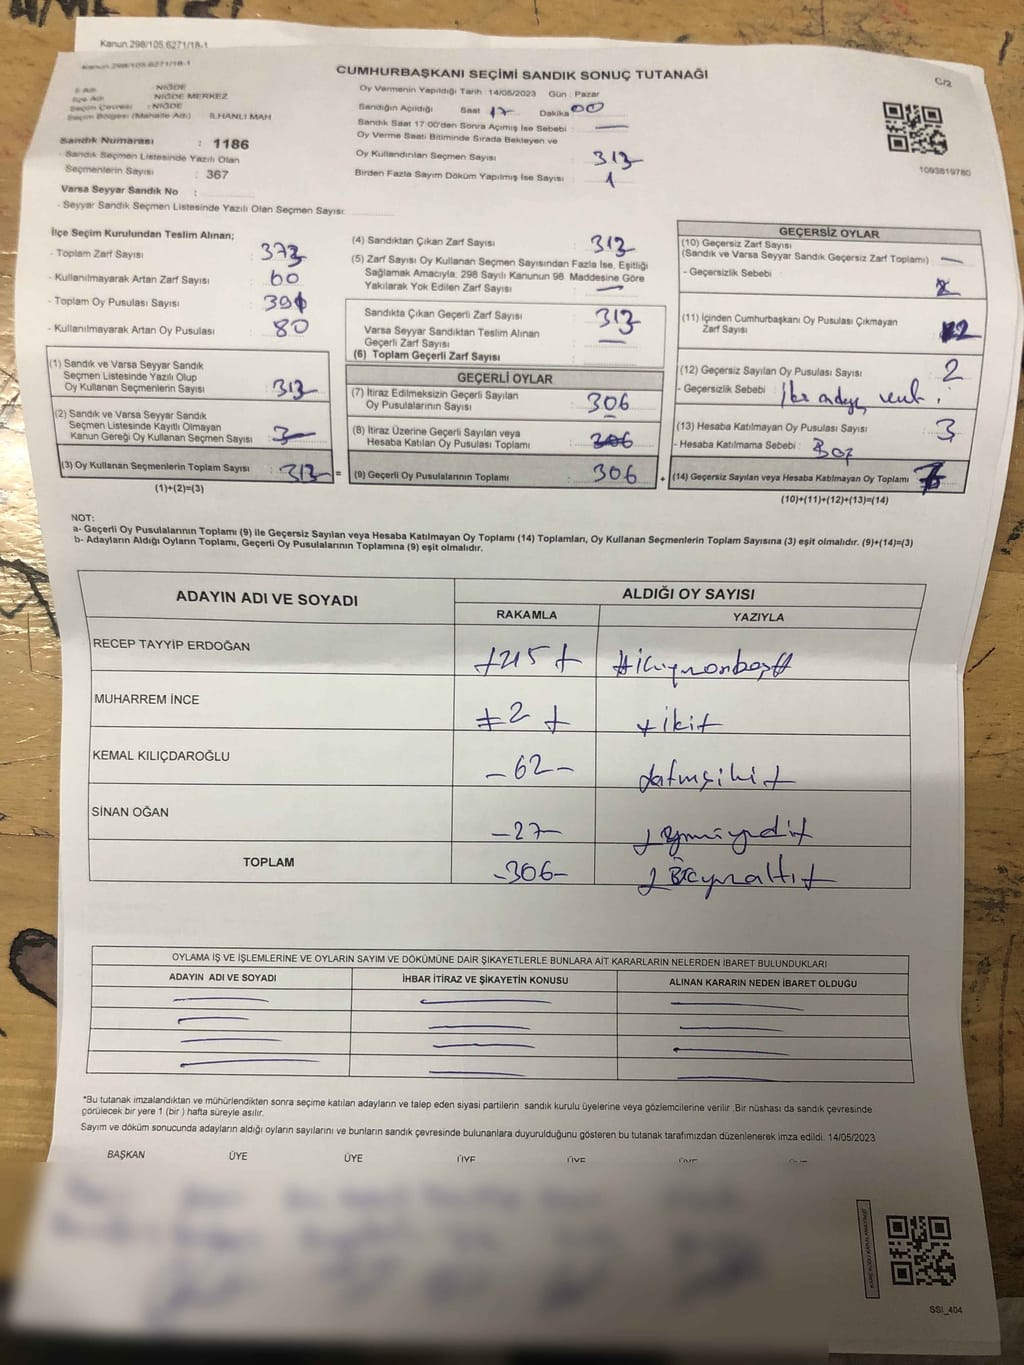 Kanun.298/105.6271/18-1
Kanun.298/105.6271/18-1
CUMHURBAŞKANI SEÇİMİ SANDIK SONUÇ TUTANAĞI
C/2
İl Adı : NİĞDE
İlçe Adı : NİĞDE MERKEZ
Seçim Çevresi : NİĞDE
Seçim Bölgesi (Mahalle Adı) : İLHANLI MAH
Sandık Numarası : 1186
- Sandık Seçmen Listesinde Yazılı Olan
Seçmenlerin Sayısı : 367
Varsa Seyyar Sandık No :
- Seyyar Sandık Seçmen Listesinde Yazılı Olan Seçmen Sayısı:
Oy Vermenin Yapıldığı Tarih : 14/05/2023 Gün : Pazar
Sandığın Açıldığı Saat 17 Dakika 00
Sandık Saat 17:00'den Sonra Açılmış İse Sebebi : —
Oy Verme Saati Bitiminde Sırada Bekleyen ve
Oy Kullandırılan Seçmen Sayısı : 313
Birden Fazla Sayım Döküm Yapılmış İse Sayısı : 1
1093819780
İlçe Seçim Kurulundan Teslim Alınan;
- Toplam Zarf Sayısı : 373
- Kullanılmayarak Artan Zarf Sayısı : 60
- Toplam Oy Pusulası Sayısı :
- Kullanılmayarak Artan Oy Pusulası : 80
(1) Sandık ve Varsa Seyyar Sandık
Seçmen Listesinde Yazılı Olup
Oy Kullanan Seçmenlerin Sayısı : 313
(2) Sandık ve Varsa Seyyar Sandık
Seçmen Listesinde Kayıtlı Olmayan
Kanun Gereği Oy Kullanan Seçmen Sayısı :
(3) Oy Kullanan Seçmenlerin Toplam Sayısı : 313 =
(1)+(2)=(3)
(4) Sandıktan Çıkan Zarf Sayısı : 313
(5) Zarf Sayısı Oy Kullanan Seçmen Sayısından Fazla İse, Eşitliği
Sağlamak Amacıyla; 298 Sayılı Kanunun 98. Maddesine Göre
Yakılarak Yok Edilen Zarf Sayısı : —
Sandıkta Çıkan Geçerli Zarf Sayısı : 313
Varsa Seyyar Sandıktan Teslim Alınan
Geçerli Zarf Sayısı : —
(6) Toplam Geçerli Zarf Sayısı :
GEÇERLİ OYLAR
(7) İtiraz Edilmeksizin Geçerli Sayılan
Oy Pusulalarının Sayısı : 306
(8) İtiraz Üzerine Geçerli Sayılan veya
Hesaba Katılan Oy Pusulası Toplamı : 306
(9) Geçerli Oy Pusulalarının Toplamı : 306 +
GEÇERSİZ OYLAR
(10) Geçersiz Zarf Sayısı
(Sandık ve Varsa Seyyar Sandık Geçersiz Zarf Toplamı) : —
- Geçersizlik Sebebi :
(11) İçinden Cumhurbaşkanı Oy Pusulası Çıkmayan
Zarf Sayısı : 2
(12) Geçersiz Sayılan Oy Pusulası Sayısı : 2
- Geçersizlik Sebebi :
(13) Hesaba Katılmayan Oy Pusulası Sayısı : 3
- Hesaba Katılmama Sebebi : Boş
(14) Geçersiz Sayılan veya Hesaba Katılmayan Oy Toplamı : 7
(10)+(11)+(12)+(13)=(14)
NOT:
a- Geçerli Oy Pusulalarının Toplamı (9) ile Geçersiz Sayılan veya Hesaba Katılmayan Oy Toplamı (14) Toplamları, Oy Kullanan Seçmenlerin Toplam Sayısına (3) eşit olmalıdır. (9)+(14)=(3)
b- Adayların Aldığı Oyların Toplamı, Geçerli Oy Pusulalarının Toplamına (9) eşit olmalıdır.
ADAYIN ADI VE SOYADI ALDIĞI OY SAYISI
RAKAMLA YAZIYLA
RECEP TAYYİP ERDOĞAN 215 ikiyüzonbeş
MUHARREM İNCE 2 iki
KEMAL KILIÇDAROĞLU -62- altmışiki
SİNAN OĞAN -27- yirmiyedi
TOPLAM -306- üçyüzaltı
OYLAMA İŞ VE İŞLEMLERİNE VE OYLARIN SAYIM VE DÖKÜMÜNE DAİR ŞİKAYETLERLE BUNLARA AİT KARARLARIN NELERDEN İBARET BULUNDUKLARI
ADAYIN ADI VE SOYADI İHBAR İTİRAZ VE ŞİKAYETİN KONUSU ALINAN KARARIN NEDEN İBARET OLDUĞU
*Bu tutanak imzalandıktan ve mühürlendikten sonra seçime katılan adayların ve talep eden siyasi partilerin sandık kurulu üyelerine veya gözlemcilerine verilir .Bir nüshası da sandık çevresinde
görülecek bir yere 1 (bir ) hafta süreyle asılır.
Sayım ve döküm sonucunda adayların aldığı oyların sayılarını ve bunların sandık çevresinde bulunanlara duyurulduğunu gösteren bu tutanak tarafımızdan düzenlenerek imza edildi. 14/05/2023
BAŞKAN ÜYE ÜYE ÜYE ÜYE
SSI_404